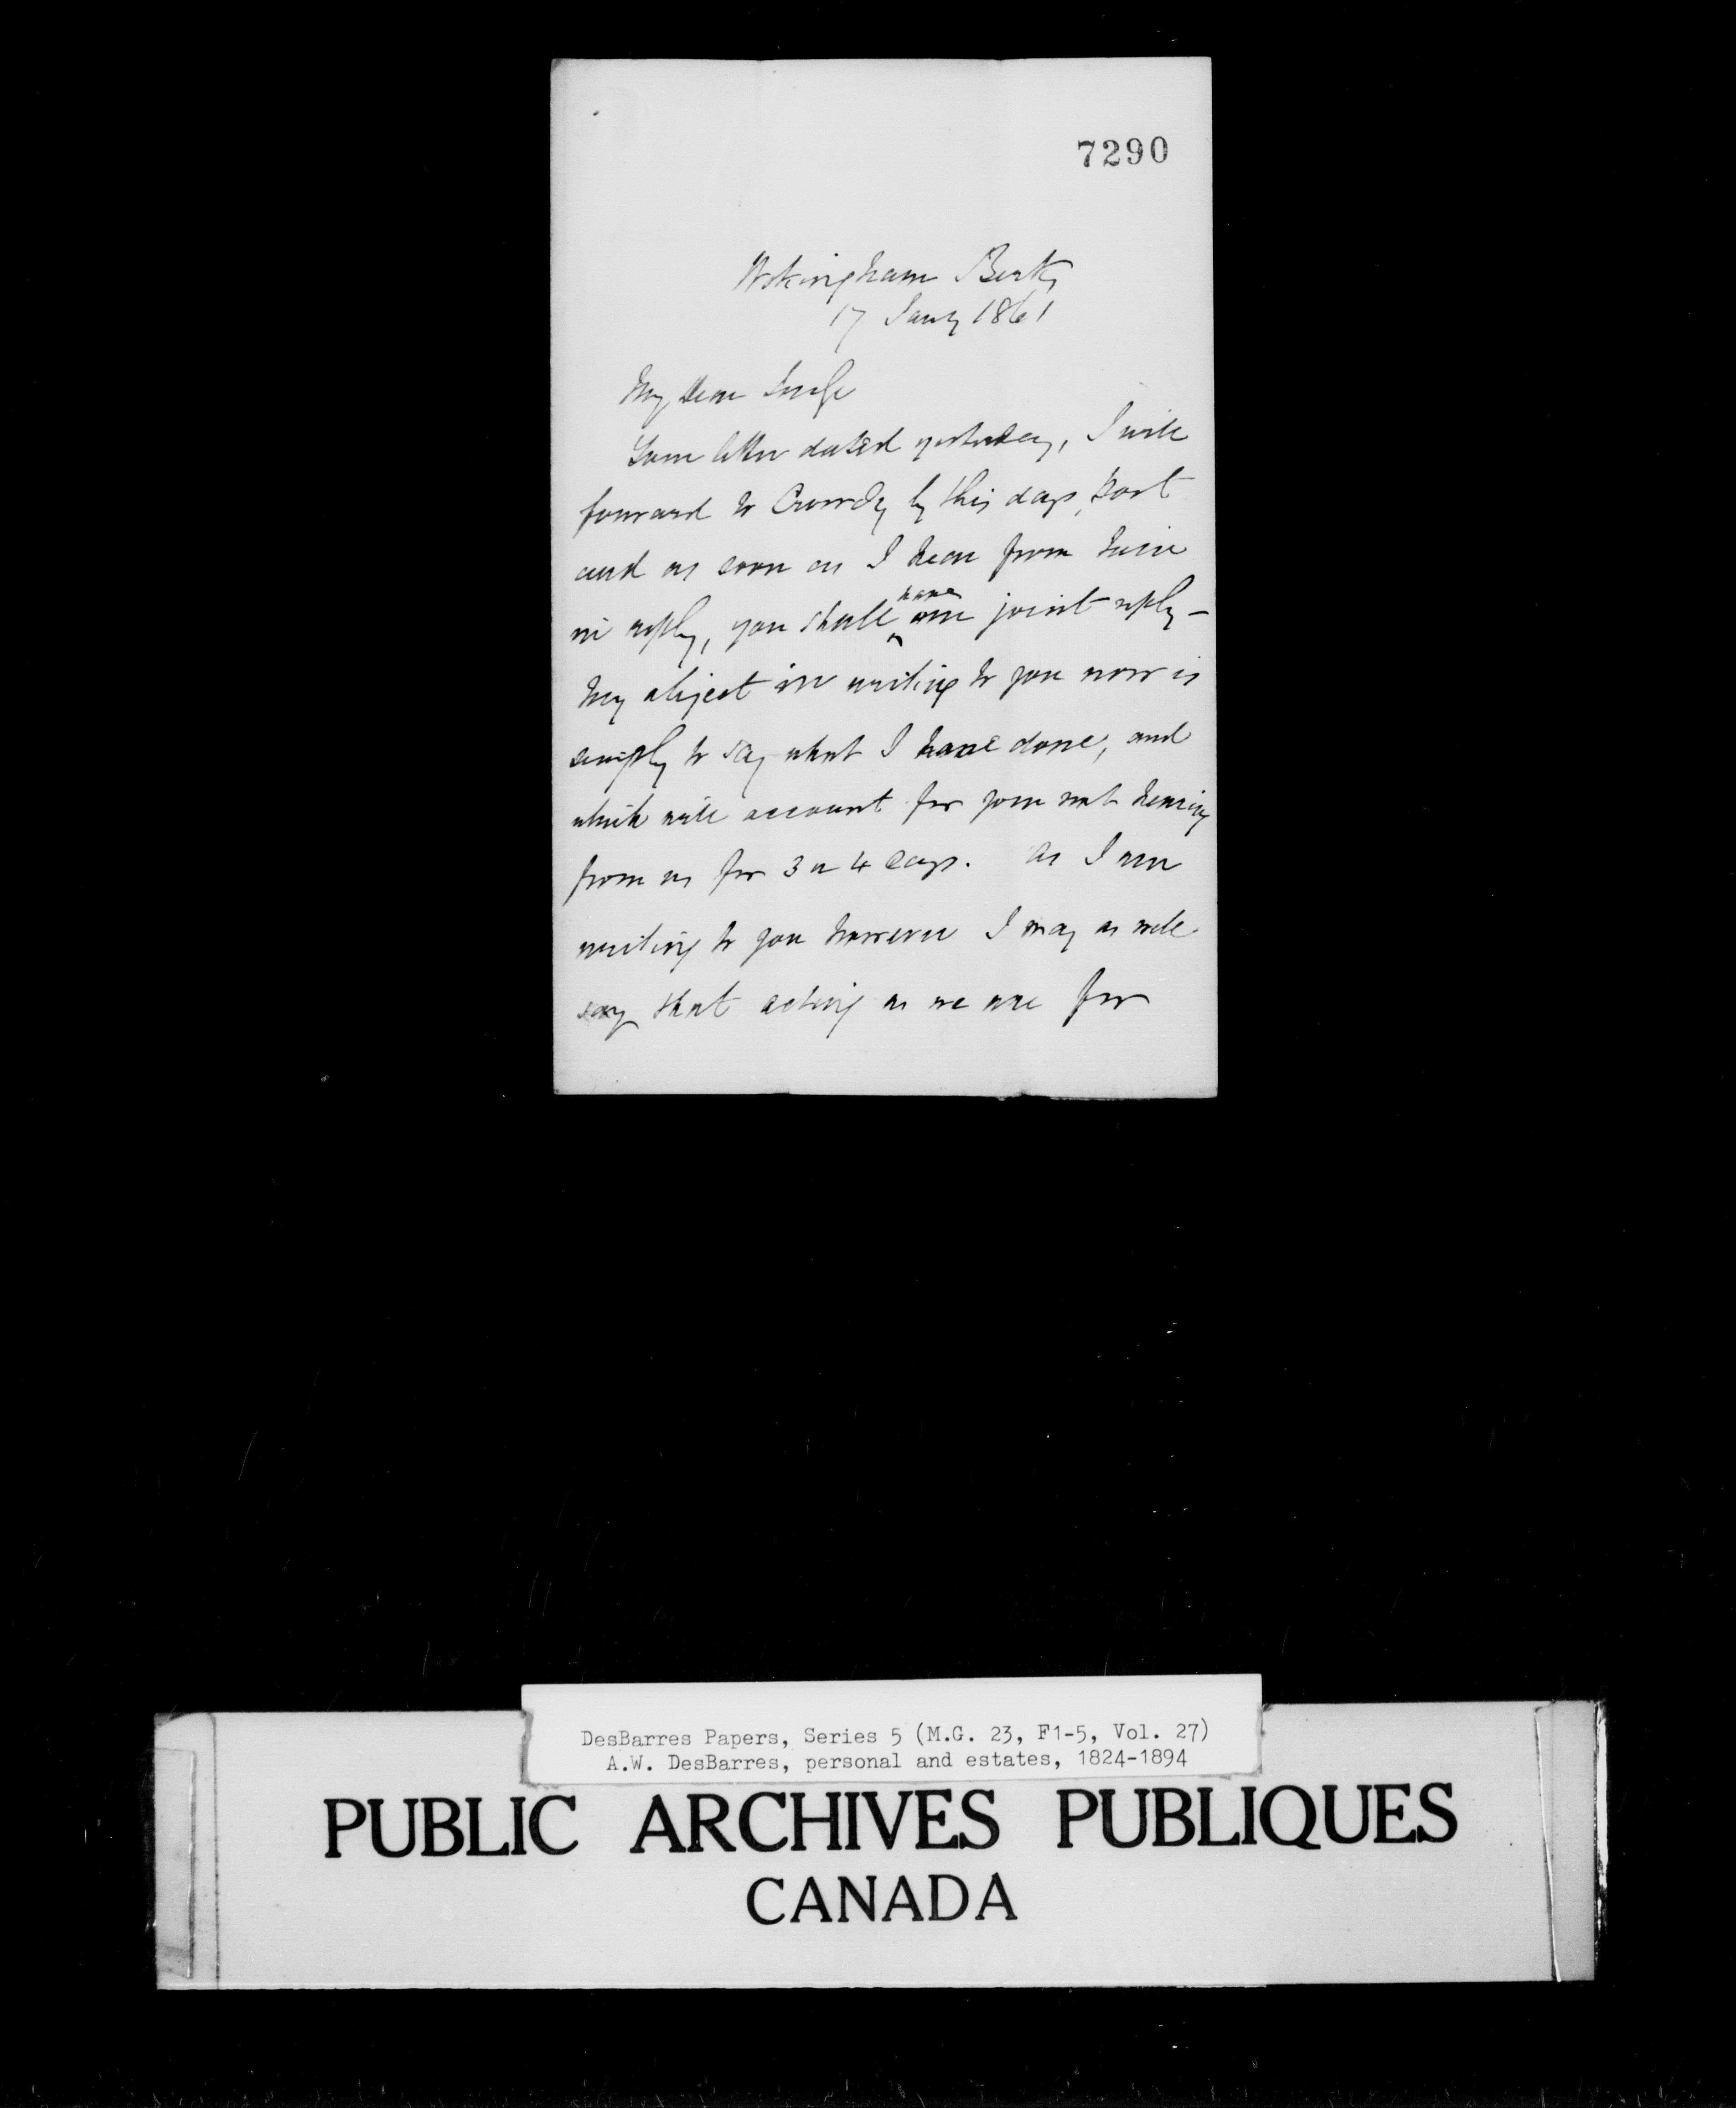 7290
Wokingham Berks
17 Jany 1861
My dear
Your letter dated yesterday, I will
forward to Crowdy by this days post
and as soon as I hear from him
in reply, you shall have our joint reply -
My object in writing to you now is
simply to say what I have done, and
which will account for your not hearing
from us for 3 or 4 days. As I am
writing to you however I may as well
say that acting as we are for
DesBarres Papers, Series 5 (M.G. 23, F1-5, Vol. 27)
A.W. DesBarres, personal and estates, 1824-1894
PUBLIC ARCHIVES PUBLIQUES
CANADA